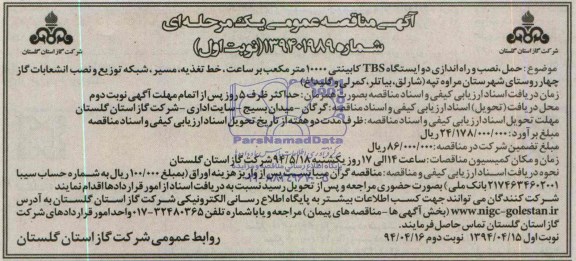 آگهی مناقصه عمومی یک مرحله ای
شماره ۱۳۹۳۰۱۹۸۹ (نوبت اول)
شرکت گاز استان گلستان
شرکت گاز استان گلستان
موضوع: حمل، نصب و راه اندازی دو ایستگاه TBS کابینتی ۱۰۰۰۰ متر مکعب بر ساعت، خط تغذیه، مسیر، شبکه توزیع و نصب انشعابات گاز
چهار روستای شهرستان مراوه تپه (شارلق، بیاتلر، کمرلی و گلیداغ)
زمان دریافت اسناد ارزیابی کیفی و اسناد مناقصه بصورت همزمان: حداکثر ظرف ۵ روز پس از اتمام مهلت آگهی نوبت دوم
محل دریافت (تحویل) اسناد ارزیابی کیفی و اسناد مناقصه: گرگان - میدان بسیج - سایت اداری - شرکت گاز استان گلستان
مهلت تحویل اسناد ارزیابی کیفی و اسناد مناقصه: ظرف مدت دو هفته از تاریخ تحویل اسناد ارزیابی کیفی و اسناد مناقصه
مبلغ برآورد: ۲۴/۱۷۸/۰۰۰/۰۰۰ ریال
مبلغ تضمین شرکت در مناقصه: ۸۶/۰۰۰/۰۰۰ ریال
زمان و مکان کمیسیون مناقصات: ساعت ۱۴ الی ۱۷ روز یکشنبه ۹۴/۵/۱۸ شرکت گاز استان گلستان
نحوه دریافت اسناد ارزیابی کیفی و اسناد مناقصه: مناقصه گران میبایست پس از واریز هزینه اوراق (بمبلغ ۱۰۰/۰۰۰ ریال به شماره حساب سیبا
۲۱۷۴۶۳۴۶۰۲۰۰۱ بانک ملی) بصورت حضوری مراجعه و پس از تحویل رسید نسبت به دریافت اسناد از امور قراردادها اقدام نمایند
شرکت کنندگان می توانند جهت کسب اطلاعات بیشتر به پایگاه اطلاع رسانی الکترونیکی شرکت گاز استان گلستان به آدرس
www.nigc-golestan.ir (بخش آگهی ها - مناقصه های پیمان) مراجعه و یا با شماره تلفن ۳۲۴۸۰۳۶۵-۰۱۷ واحد امور قراردادهای شرکت
گاز استان گلستان تماس حاصل فرمایند.
نوبت اول ۱۳۹۴/۰۴/۱۵ نوبت دوم ۹۴/۰۴/۱۶
روابط عمومی شرکت گاز استان گلستان
ParsNamadData